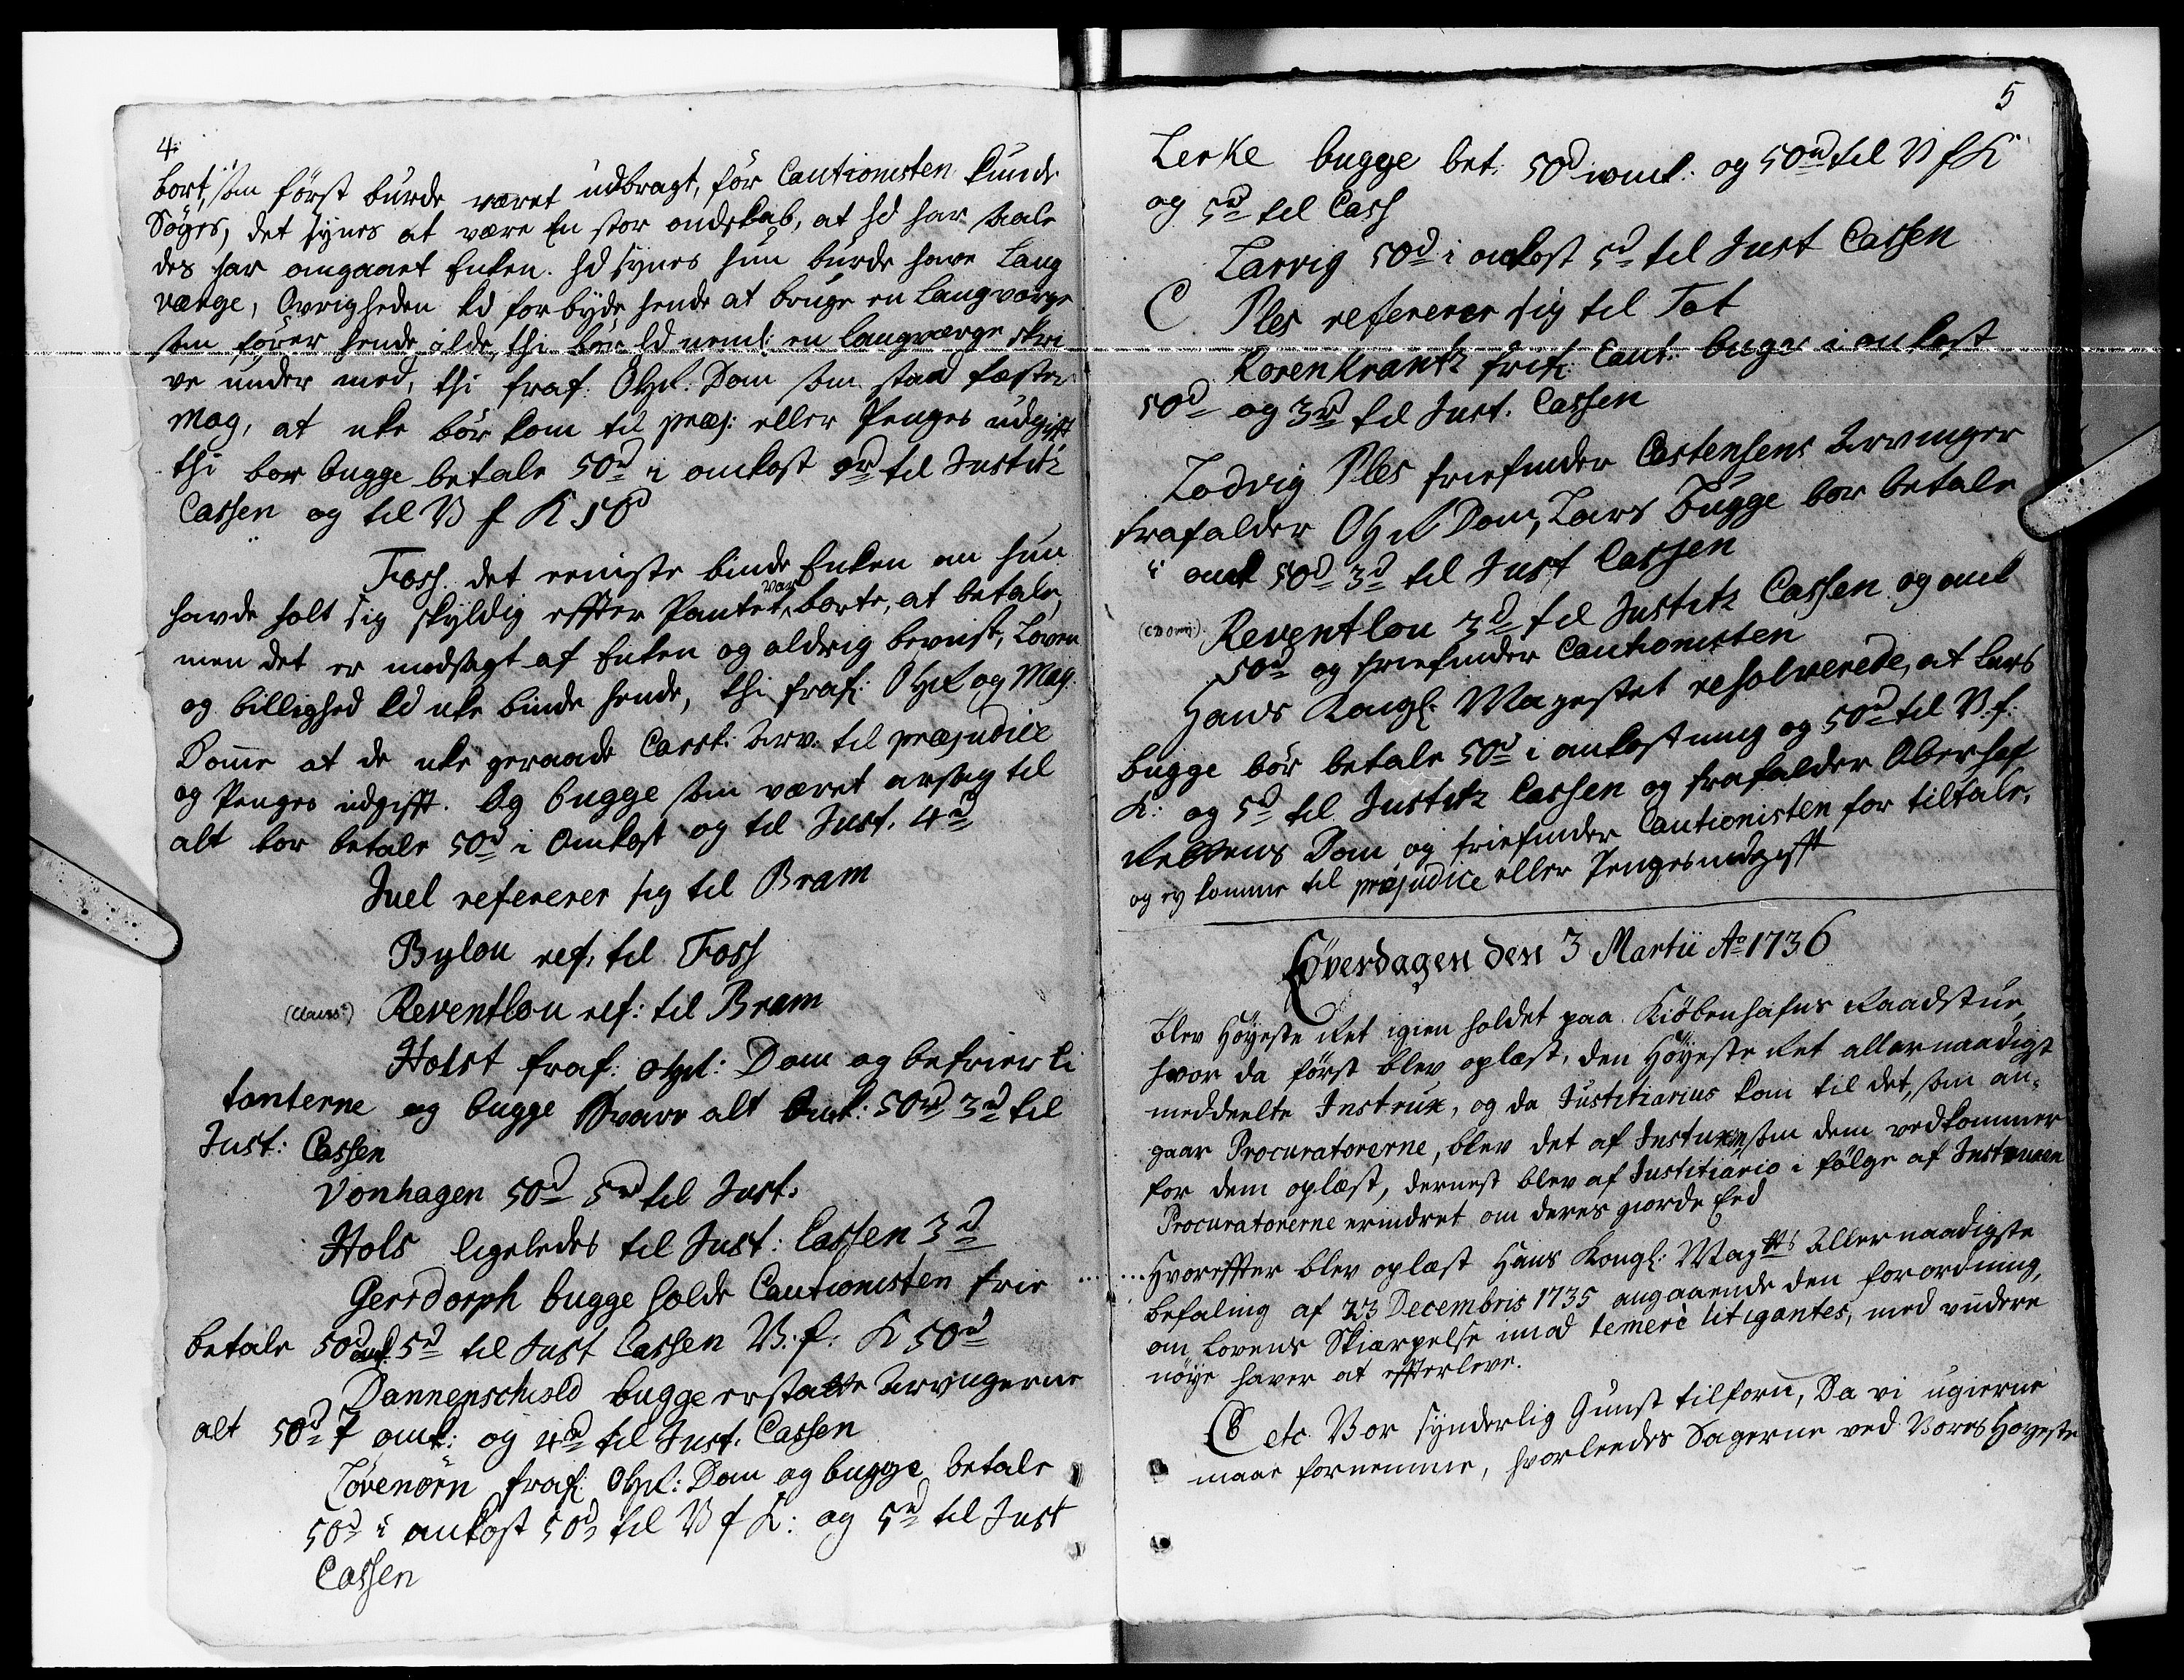 4.
bort, som först burde været udbragt, för Cautionisten kunde
Söges, det synes at være En stor ondskab, at hd har saale
des har omgaaet Enken. hd synes hun burde have Laug
værge, Øvrigheden kd forbyde hende at bruge en Laugværge
som fører hende ilde, thi bör hd neml: en Laugværge skri
ve under med, thi fraf. OHR. Dom som stad fæster
Mag, at icke bör kom til præj: eller Penges udgifft
thi bor bugge betale 50d i omkost 3d til Justitz
Cassen og til V f K 50d
Foss. det eeniste binde Enken om hun
havde holt sig skyldig effter Pantet var borte, at betale,
men det er modsagt af Enken og aldrig beviist, Loven
og billighed kd icke binde hende, thi fraf: OHR og Mag
Domme at de icke geraade Carst: Arv. til præjudice
og Penges udgifft. Og bugge som været aarsag til
alt bor betale 50d i Omkost og til Just. 4d
Juel refererer sig til Bram
Bylou ref. til Foss
(Claus:) Reventlou ref: til Bram
Holst fraf: OHR: Dom og befrier Ci
tanterne og bugge Svare alt Omk: 50d 3d til
Just: Cassen
Vonhagen 50d 5d til Just.
Hols ligeledes til Just: Cassen 3d
Gersdorph bugge holde Cautionisten frie
betale 50d omk. 5d til Just Cassen V: f: K 50d
Dannenschiold bugge erstatte Arvingerne
alt 50d i omk: og 4d til Just. Cassen
Lövenörn fraf: OHR: Dom og bugge betale
50d i omkost 50d til V f K: og 5d til Just
Cassen
5
Lerke bugge bet. 50d i omk: og 50d til V f K
og 5d til Cass
Larvig 50d i omkost 5d til Just Cassen
C. Ples refererer sig til Tot
Rosenkrantz frif: Caut: bugge i omkost
50d og 3d til Just. Cassen
Lodvig Ples friefinder Carstensens Arvinger
frafalder OHR Dom, Lars Bugge bor betale
i omk 50d 3d til Just Cassen
(CDom:) Reventlou 3d til Justitz Cassen og omk
50d og friefinder Cautionisten
Hans Kongl: Mayestet resolverede, at Lars
bugge bör betale 50d i omkostning og 50d til V: f:
K: og 5d til Justitz Cassen og frafalder Oberhof
Rettens Dom og friefinder Cautionisten for tiltale,
og ey komme til præjudice eller Penges udgifft
Löverdagen den 3 Martii Ao 1736
blev Höyeste Ret igien holdet paa Kiöbenhafns Raadstue,
hvor da först blev oplæst, den Höyeste Ret allernaadigst
meddeelte Instrux, og da Justitiarius kom til det, som an-
gaar Procuratorerne, blev det af Instuxen, som dem vedkommer
for dem oplæst, dernest blev af Justitiario i fölge af Instruxen
Procuratorerne erindret om deres giorde Eed
Hvoreffter blev oplæst Hans Kongl: Maytts Allernaadigste
befaling af 23 Decembris 1735 angaaende den forordning,
om Lovens Skiærpelse imod temerè litigantes, med videre
nöye haver at effterleve.
C6 etc Vor synderlig Gunst tilforn, Da vi ugierne
maae fornemme, hvorleedes Sagerne ved Vores Hoyeste